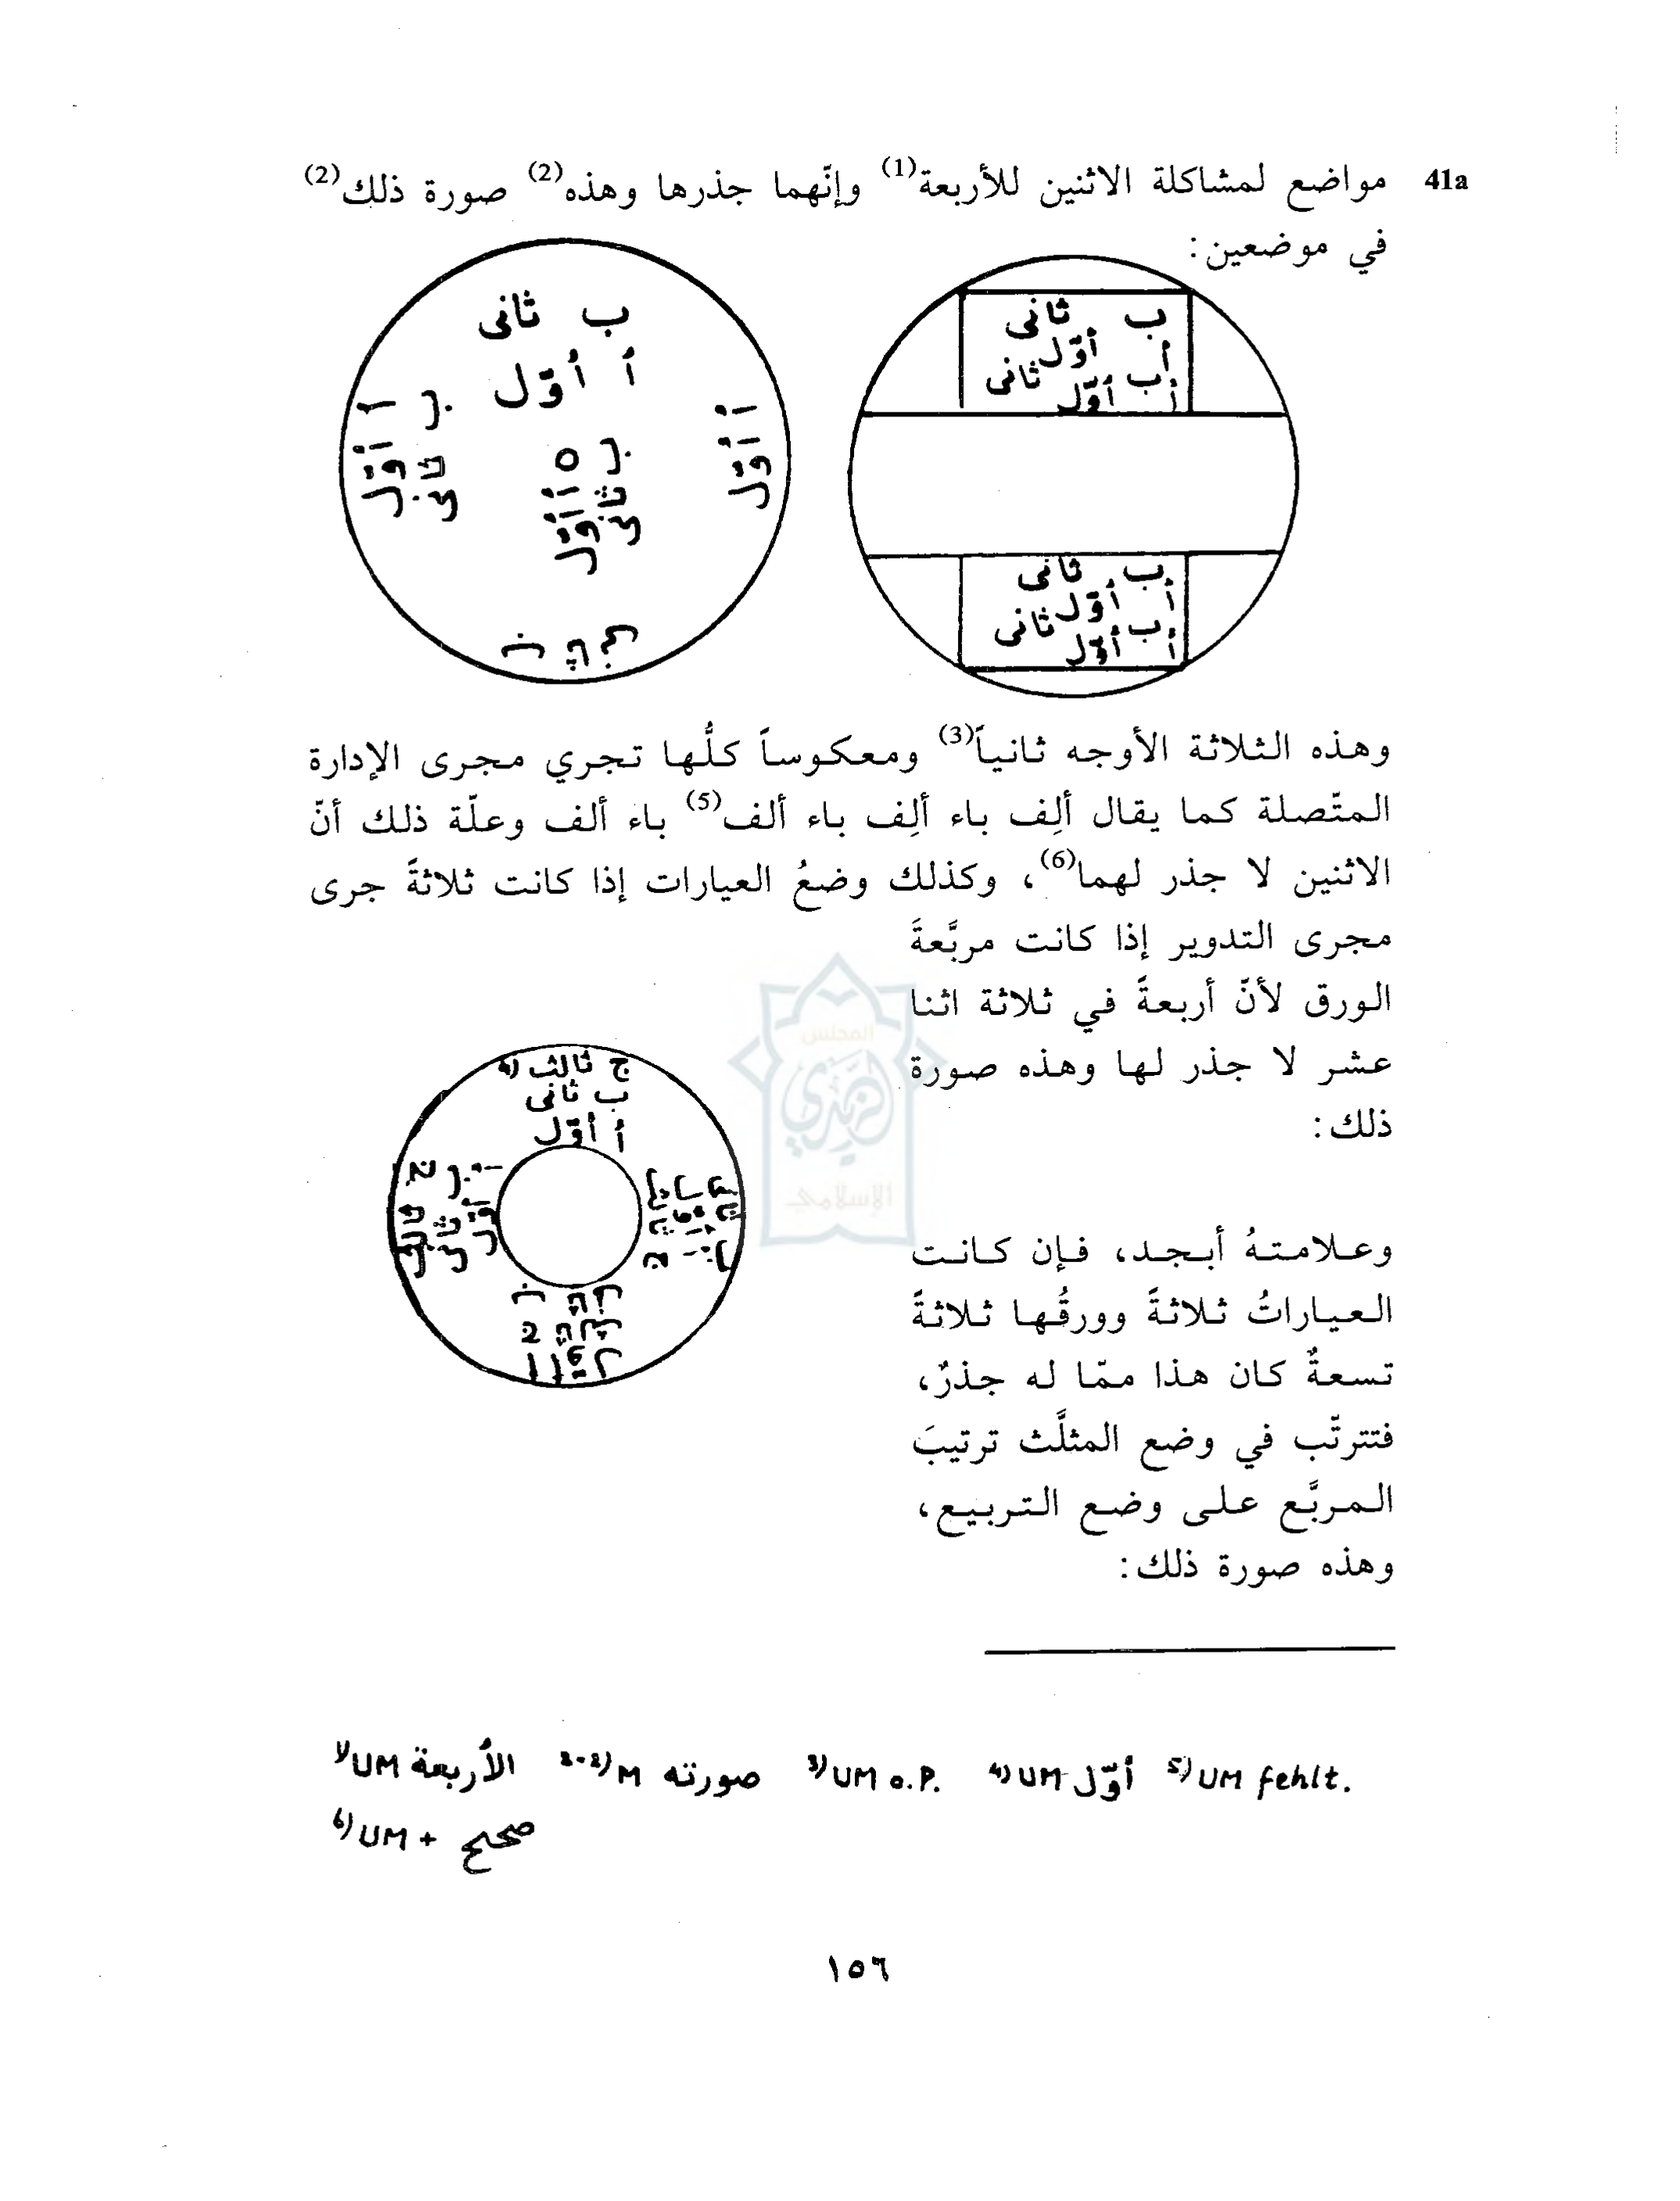 41a مواضع لمشاكلة الاثنين للأربعة(1) وإنّهما جذرها وهذه(2) صورة ذلك(2)
في موضعين:
ب ثانى
أ أوّل
ب ثانى
أ أوّل
ب ثانى
أ أوّل
ب ثانى
أ أوّل
ب ثانى
أ أوّل
أ أوّل
ب ثانى
أ أوّل
ب ثانى
أ أوّل
وهذه الثلاثة الأوجه ثانياً(3) ومعكوساً كلُّها تجري مجرى الإدارة
المتّصلة كما يقال ألِف باء ألِف باء ألف(5) باء ألف وعلّة ذلك أنّ
الاثنين لا جذر لهما(6)، وكذلك وضعُ العيارات إذا كانت ثلاثةً جرى
مجرى التدوير إذا كانت مربَّعةَ
الورق لأنّ أربعةً في ثلاثة اثنا
عشر لا جذر لها وهذه صورة
ذلك:
ج ثالث 4)
ب ثانى
أ أوّل
وعلامتهُ أبجد، فإن كانت
العياراتُ ثلاثةً وورقُها ثلاثةً
تسعةٌ كان هذا ممّا له جذرٌ،
فتترتّب في وضع المثلَّث ترتيبَ
المربَّع على وضع التربيع،
وهذه صورة ذلك:
1) UM الأربعة 2-2) M صورته 3) UM o.P. 4) UM أوّل 5) UM fehlt.
6) UM + صحيح
١٥٦
المجلس
الإسلامي